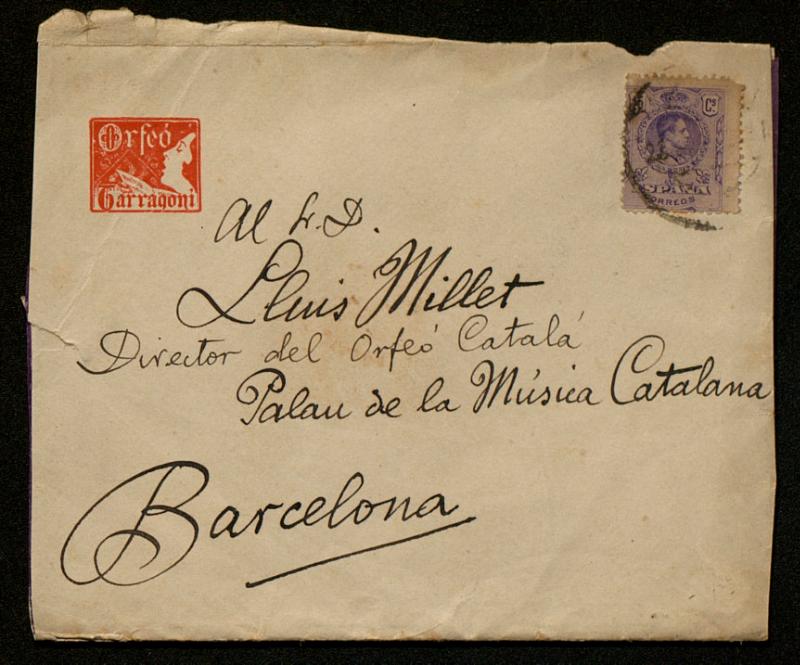 Orfeó
Tarragoní
Cs
ESPAÑA
CORREOS
Al Sr. D.
Lluis Millet
Director del Orfeó Catalá
Palau de la Música Catalana
Barcelona